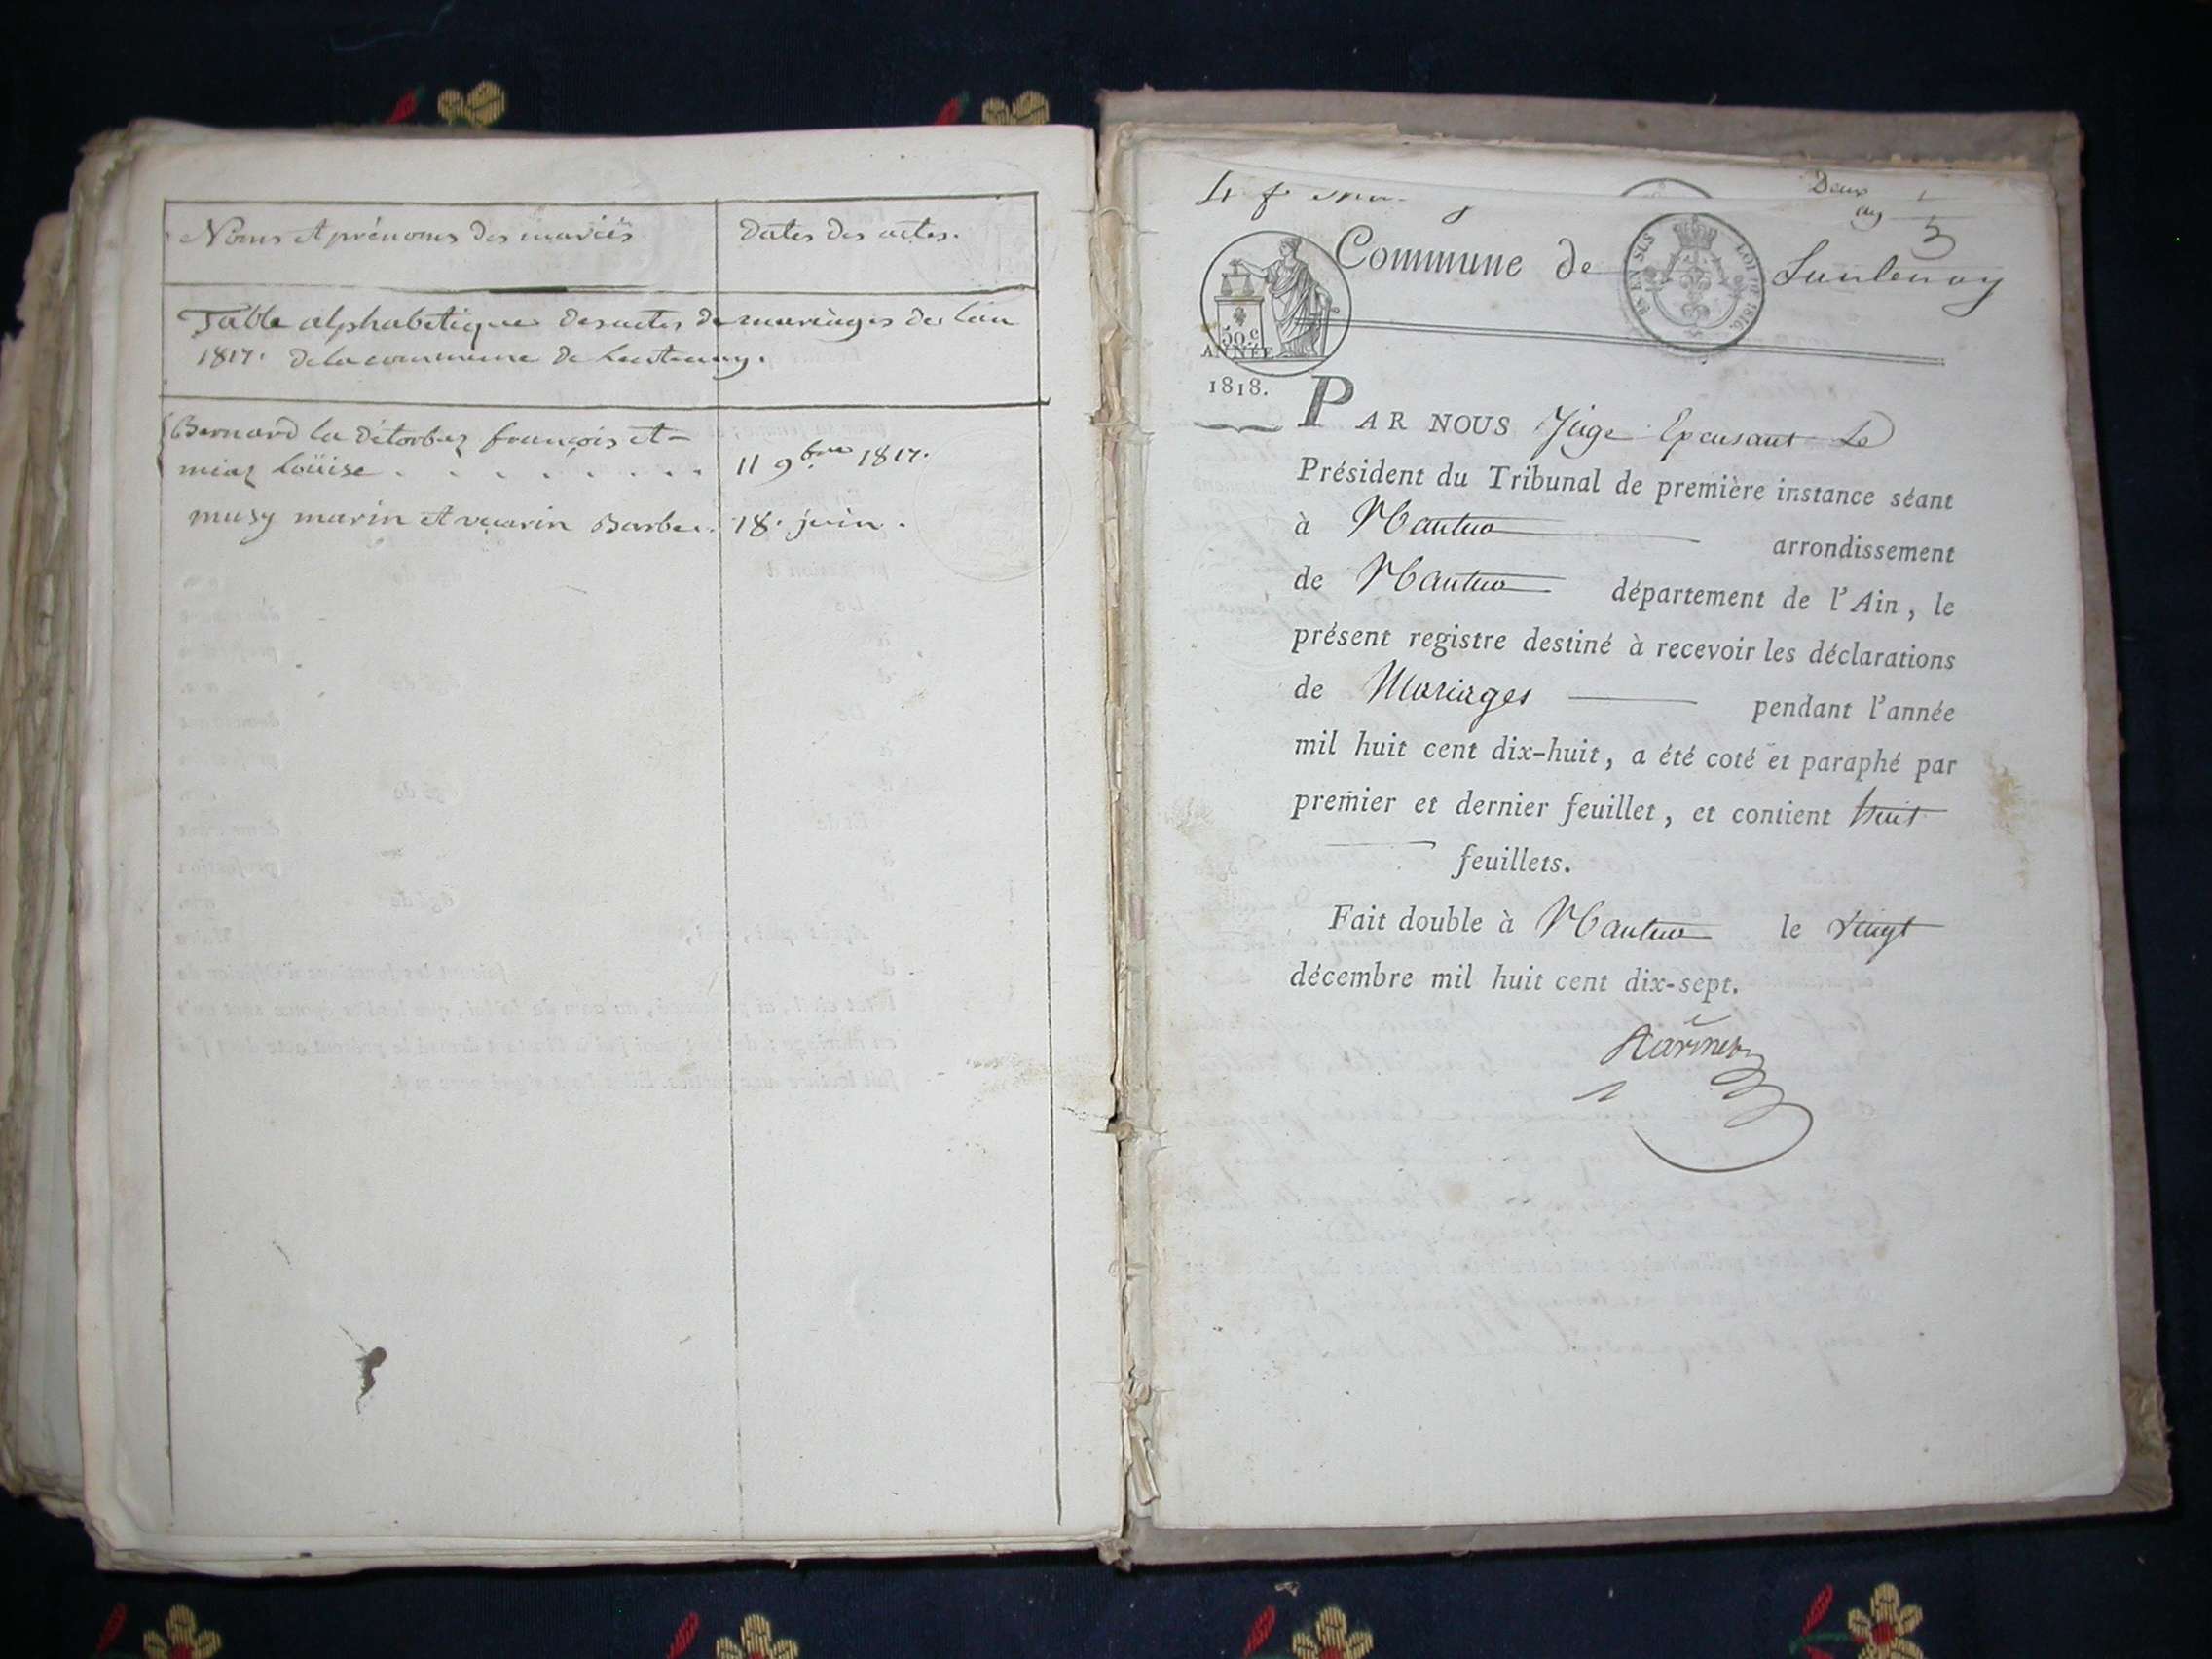 Noms et prénoms des mariés
Dates des actes.
Table alphabetique des actes de mariages de l'an
1817. de la commune de
Bernard la Détorbez françois et
miaz Loüise . . . . . . . .
11 9bre 1817.
musy marin et Barbe.
18. juin.
Deux
Commune de
EN SUS LOI DE 1816.
50 c
ANNÉE
1818.
PAR NOUS Juge Le
Président du Tribunal de première instance séant
à Nantua arrondissement
de Nantua département de l'Ain, le
présent registre destiné à recevoir les déclarations
de Mariages pendant l'année
mil huit cent dix-huit, a été coté et paraphé par
premier et dernier feuillet, et contient huit
feuillets.
Fait double à Nantua le vingt
décembre mil huit cent dix-sept.